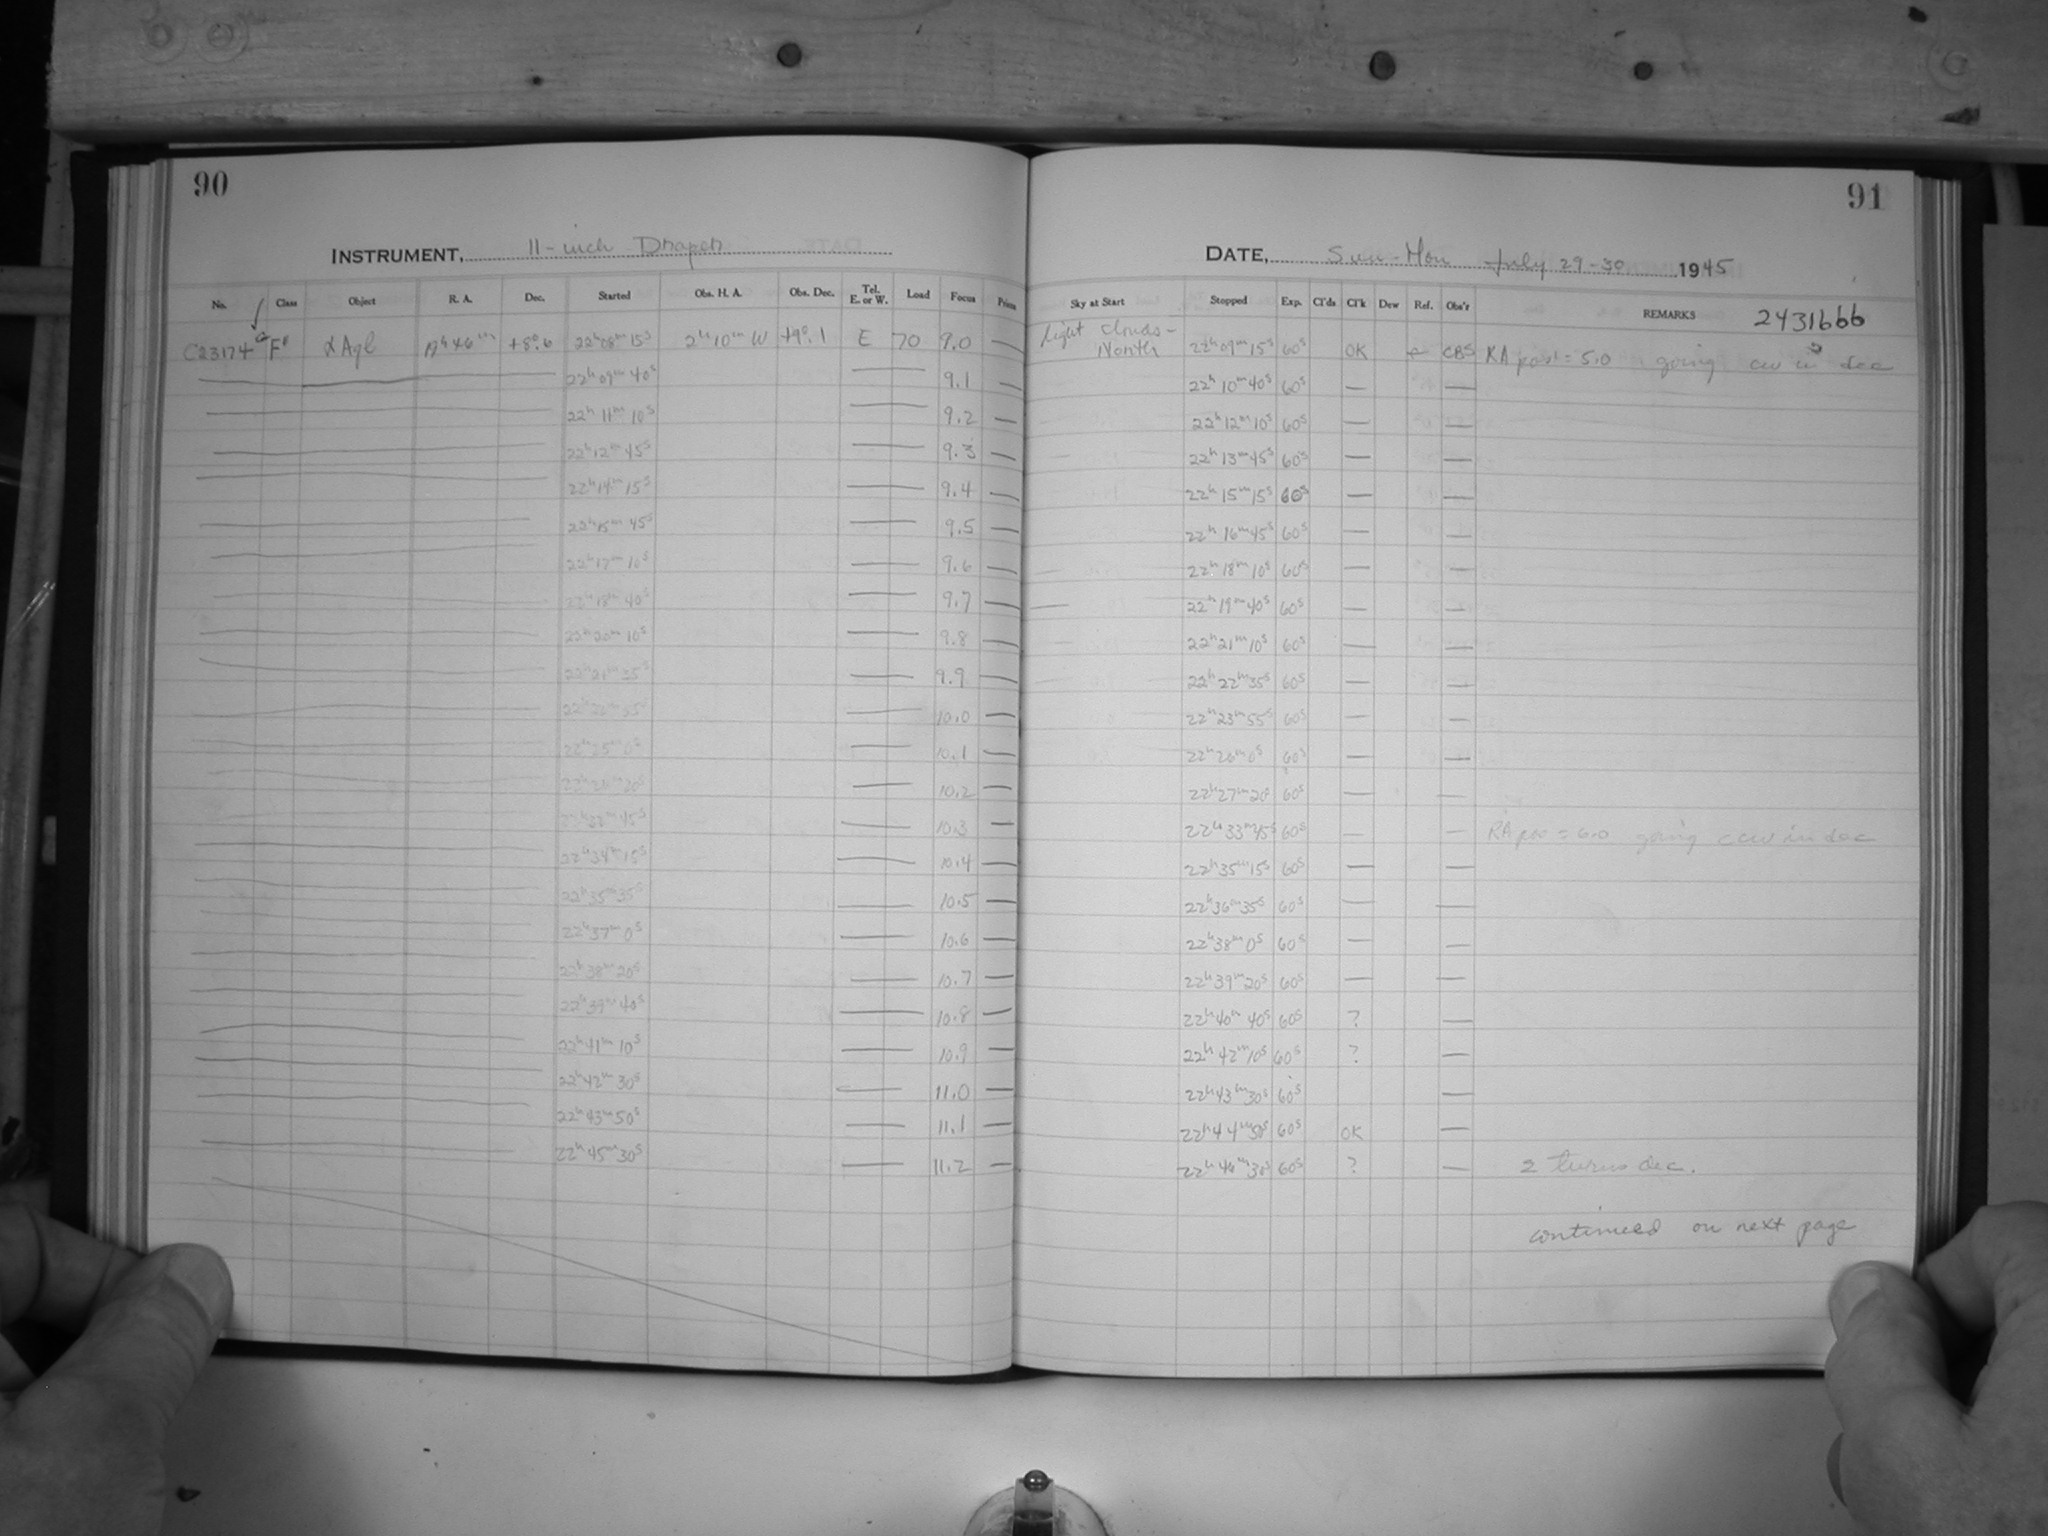 90
INSTRUMENT, 11-inch Draper
No. Class Object R. A. Dec. Started Obs. H. A. Obs. Dec. Tel. E. or W. Load Focus Prism
C23174 F αAql 19h 46m +8°.6 22h08m 15s 2h 10m W +9°.1 E 70 9.0 —
22h 09m 40s — 9.1 —
22h 11m 10s — 9.2 —
22h 12m 45s — 9.3 —
22h 14m 15s — 9.4 —
22h 15m 45s — 9.5 —
22h 17m 10s — 9.6 —
22h 18m 40s — 9.7 —
22h 20m 10s — 9.8 —
22h 21m 35s — 9.9 —
22h 22m 55s — 10.0 —
22h 25m 0s — 10.1 —
22h 26m 20s — 10.2 —
22h 32m 45s — 10.3 —
22h 34m 15s — 10.4 —
22h 35m 35s — 10.5 —
22h 37m 0s — 10.6 —
22h 38m 20s — 10.7 —
22h 39m 40s — 10.8 —
22h 41m 10s — 10.9 —
22h 42m 30s — 11.0 —
22h 43m 50s — 11.1 —
22h 45m 30s — 11.2 —
91
DATE, Sun-Mon July 29-30 1945
Sky at Start Stopped Exp. Cl'ds Cl'k Dew Ref. Obs'r REMARKS 2431666
Light Clouds - North 22h 09m 15s 60s OK CBS RA pos = 5.0 going cw in dec
22h 10m 40s 60s — —
22h 12m 10s 60s — —
22h 13m 45s 60s — —
22h 15m 15s 60s — —
22h 16m 45s 60s — —
22h 18m 10s 60s — —
22h 19m 40s 60s — —
22h 21m 10s 60s — —
22h 22m 35s 60s — —
22h 23m 55s 60s — —
22h 26m 0s 60s — —
22h 27m 20s 60s — —
22h 33m 45s 60s — — RA pos = 6.0 going ccw in dec
22h 35m 15s 60s — —
22h 36m 35s 60s — —
22h 38m 0s 60s — —
22h 39m 20s 60s — —
22h 40m 40s 60s ? —
22h 42m 10s 60s ? —
22h 43m 30s 60s —
22h 44m 50s 60s OK —
22h 46m 30s 60s ? — 2 turns dec.
continued on next page